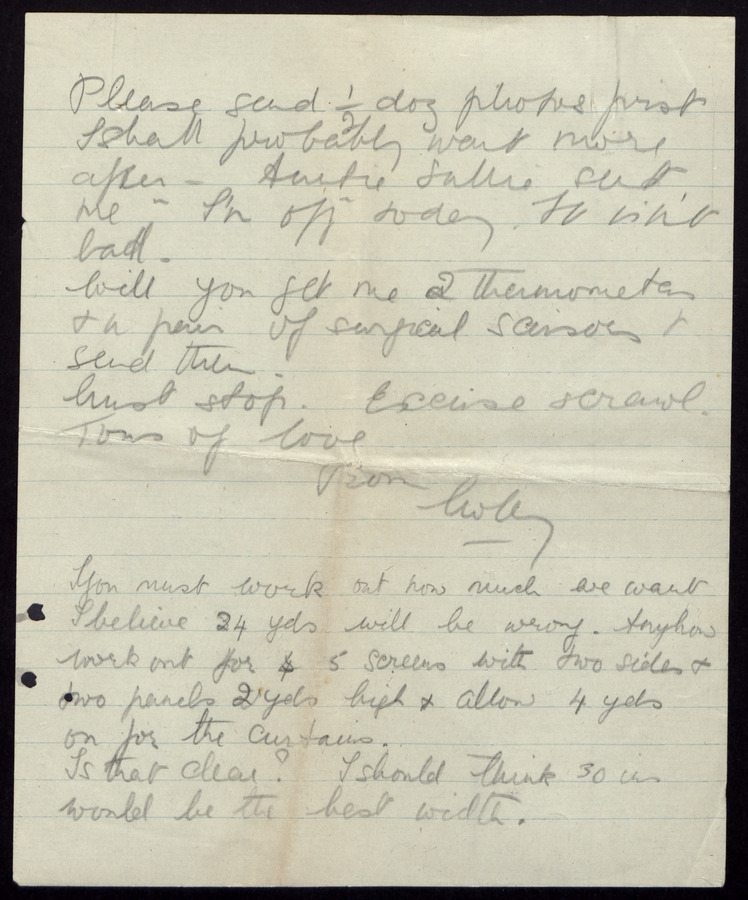 Please send ½ doz photos first
I shall probably want more
after – Auntie Sallie sent
me " I'm off today. It isn't
bad.
Will you get me 2 thermometers
& a pair of surgical scissors &
send them.
Must stop. Excuse scrawl.
Tons of love
from
You must work out how much we want
I believe 24 yds will be wrong. Anyhow
work out for 5 screens with two sides &
two panels 2 yds high & allow 4 yds
on for the curtains.
Is that clear? I should think 30 ins
would be the best width.